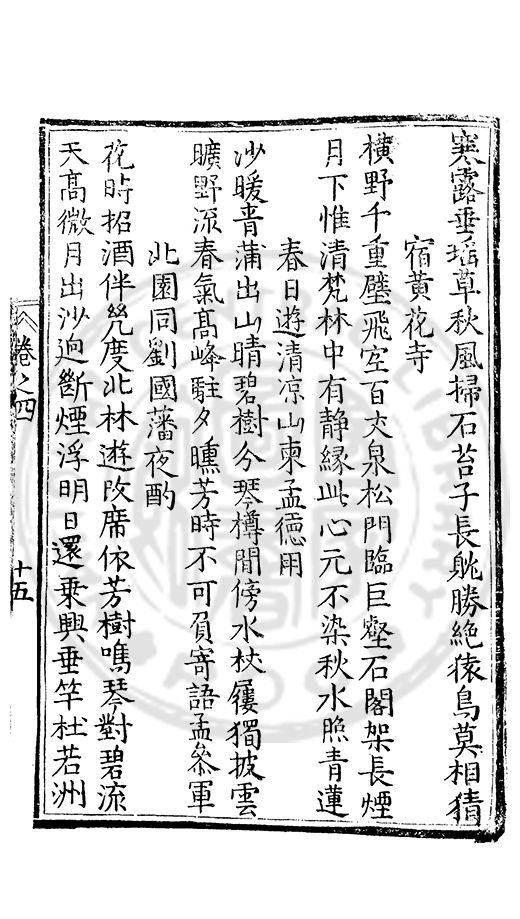 寒露垂瑶草秋風掃石苔子長躭勝絶猿鳥莫相猜
宿黄花寺
横野千重壁飛空百丈泉松門臨巨壑石閣架長煙
月下惟清梵林中有静緣此心元不染秋水照青蓮
春日遊清凉山柬孟德用
沙暖青蒲出山晴碧樹分琴樽閒傍水杖屨獨披雲
曠野流春氣髙峰駐夕曛芳時不可負寄語孟叅軍
北園同劉國藩夜酌
花時招酒伴幾度北林遊改席依芳樹鳴琴對碧流
天髙微月出沙逈斷煙浮明日還乗興垂竿杜若洲
卷之四
十五